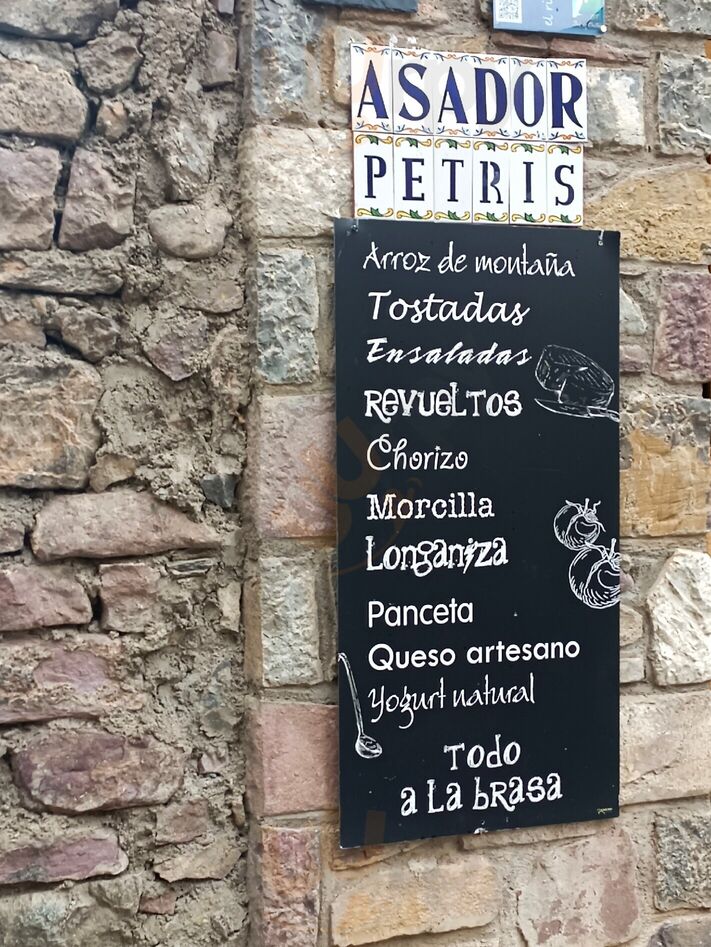 ASADOR
PETRIS
Arroz de montaña
Tostadas
Ensaladas
Revueltos
Chorizo
Morcilla
Longaniza
Panceta
Queso artesano
Yogurt natural
Todo
a la brasa